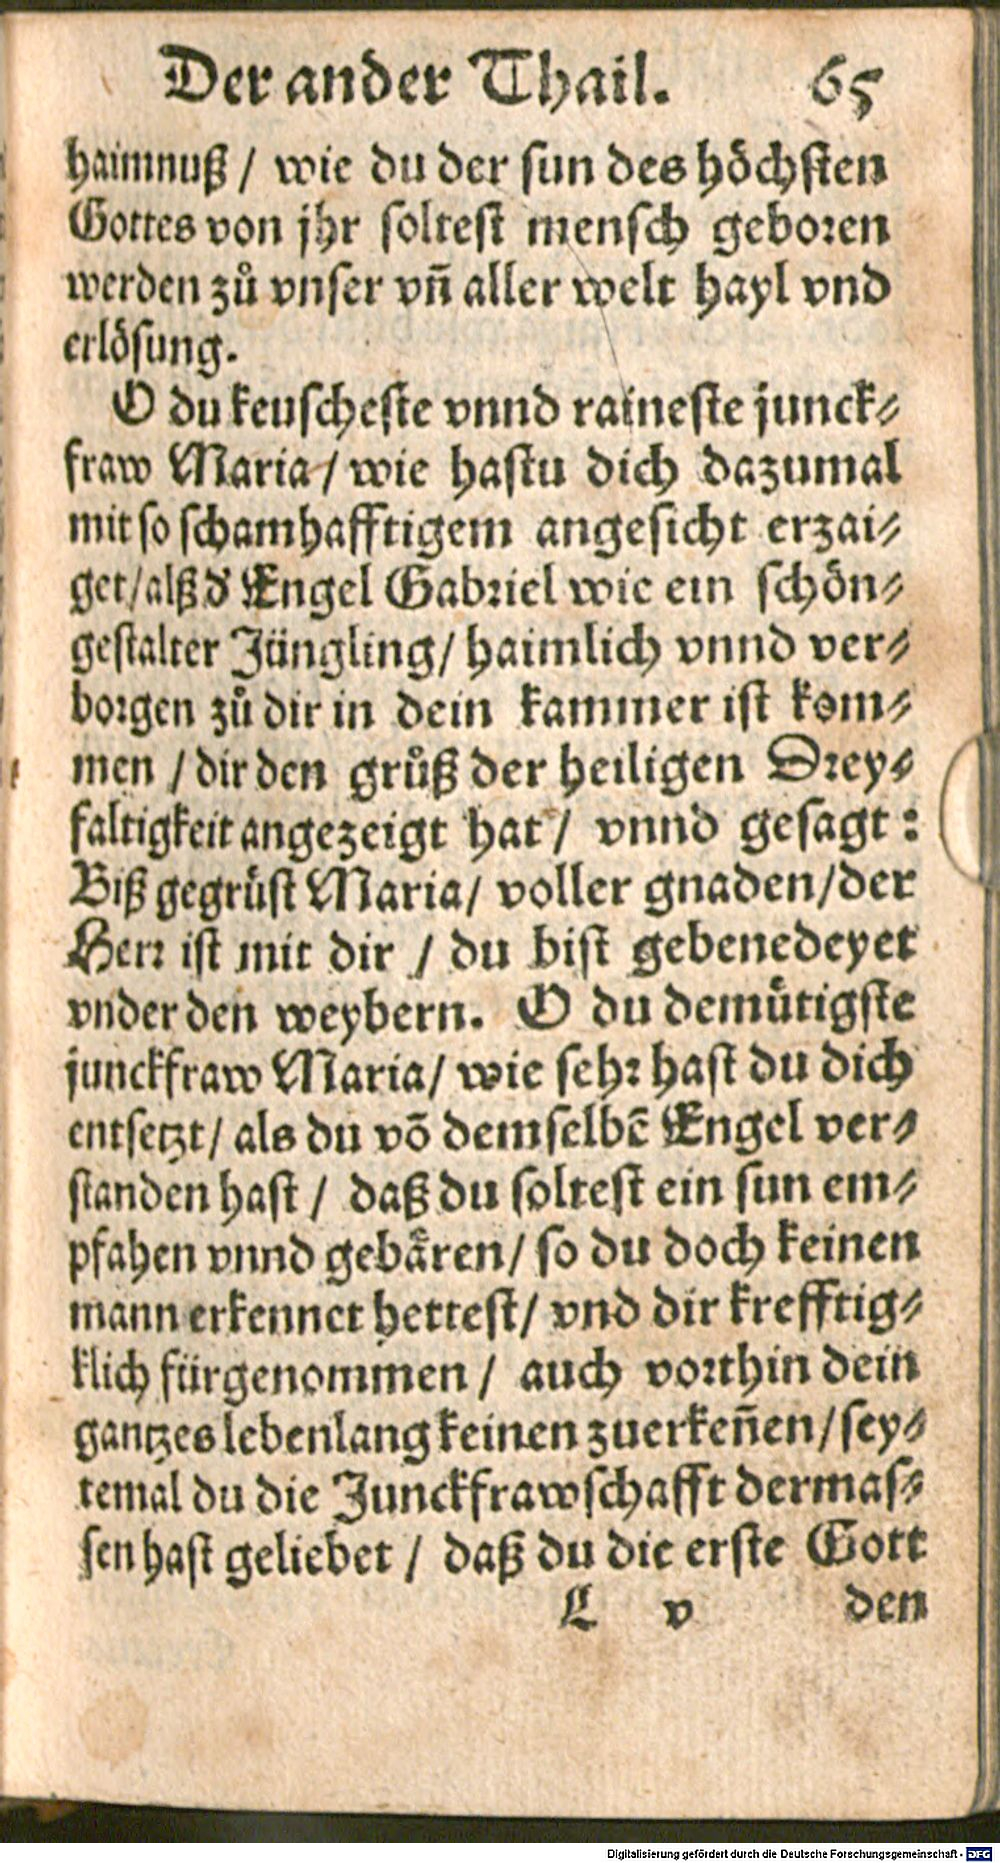 Der ander Thail. 65
haimnuß / wie du der sun des höchsten
Gottes von jhr soltest mensch geboren
werden zů vnser vñ aller welt hayl vnd
erlösung.
O du keuscheste vnnd raineste junck⸗
fraw Maria / wie hastu dich dazumal
mit so schamhafftigem angesicht erzai⸗
get / alß d' Engel Gabriel wie ein schön⸗
gestalter Jüngling / haimlich vnnd ver⸗
borgen zů dir in dein kammer ist kom⸗
men / dir den grůß der heiligen Drey⸗
faltigkeit angezeigt hat / vnnd gesagt :
Biß gegrüst Maria / voller gnaden / der
Herr ist mit dir / du bist gebenedeyet
vnder den weybern. O du demütigste
junckfraw Maria / wie sehr hast du dich
entsetzt / als du võ demselbẽ Engel ver⸗
standen hast / daß du soltest ein sun em⸗
pfahen vnnd gebären / so du doch keinen
mann erkennet hettest / vnd dir krefftig⸗
klich fürgenommen / auch vorthin dein
gantzes lebenlang keinen zuerkeñen / sey⸗
temal du die Junckfrawschafft dermas⸗
sen hast geliebet / daß du die erste Gott
L v den
Digitalisierung gefördert durch die Deutsche Forschungsgemeinschaft - DFG